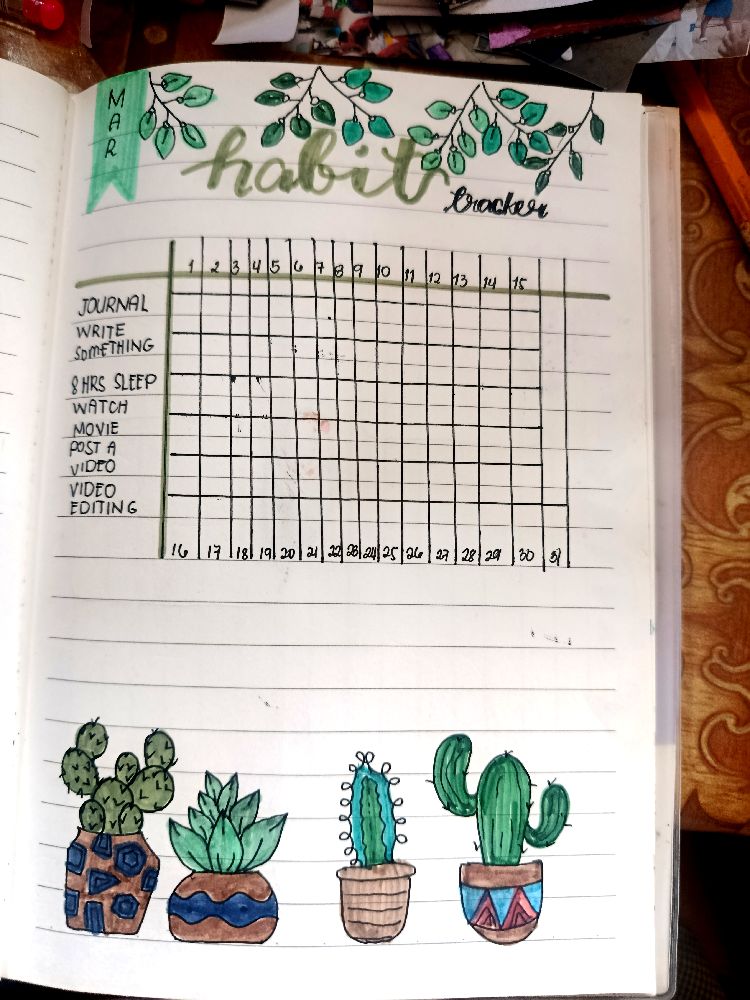 MAR
habit
tracker
1 2 3 4 5 6 7 8 9 10 11 12 13 14 15
JOURNAL
WRITE
SOMETHING
8 HRS SLEEP
WATCH
MOVIE
POST A
VIDEO
VIDEO
EDITING
16 17 18 19 20 21 22 23 24 25 26 27 28 29 30 31